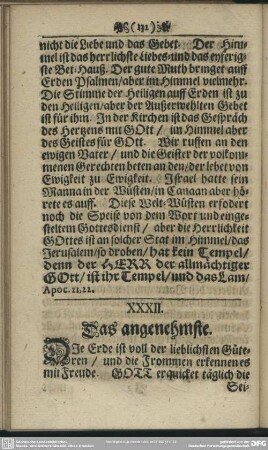 (131)
nicht die Liebe und das Gebet. Der Him-
mel ist das herrlichste Liebes- und das eyferig-
ste Bet-Hauß. Der gute Muth bringet auff
Erden Psalmen/aber im Himmel vielmehr.
Die Stimme der Heiligen auff Erden ist zu
den Heiligen/aber der Außerwehlten Gebet
ist für ihm. In der Kirchen ist das Gespräch
des Herzens mit GOtt/ im Himmel aber
des Geistes für GOtt. Wir ruffen an den
ewigen Vater/ und die Geister der volkom-
menen Gerechten beten an den/der lebet von
Ewigkeit zu Ewigkeit. Israel hatte sein
Manna in der Wüsten/in Canaan aber hö-
rete es auff. Diese Welt-Wüsten erfodert
noch die Speise von dem Wort und einge-
steltem Gottesdienst/ aber die Herrlichkeit
GOttes ist an solcher Stat im Himmel/das
Jerusalem/so droben/hat kein Tempel/
denn der HERR der allmächtiger
GOtt/ ist ihr Tempel/und das Lam/
Apoc. 21. 22.
XXXII.
Das angenehmste.
DJe Erde ist voll der lieblichsten Güte-
ren/ und die Frommen erkennen es
mit Freude. GOTT erquicket täglich die
Sei-